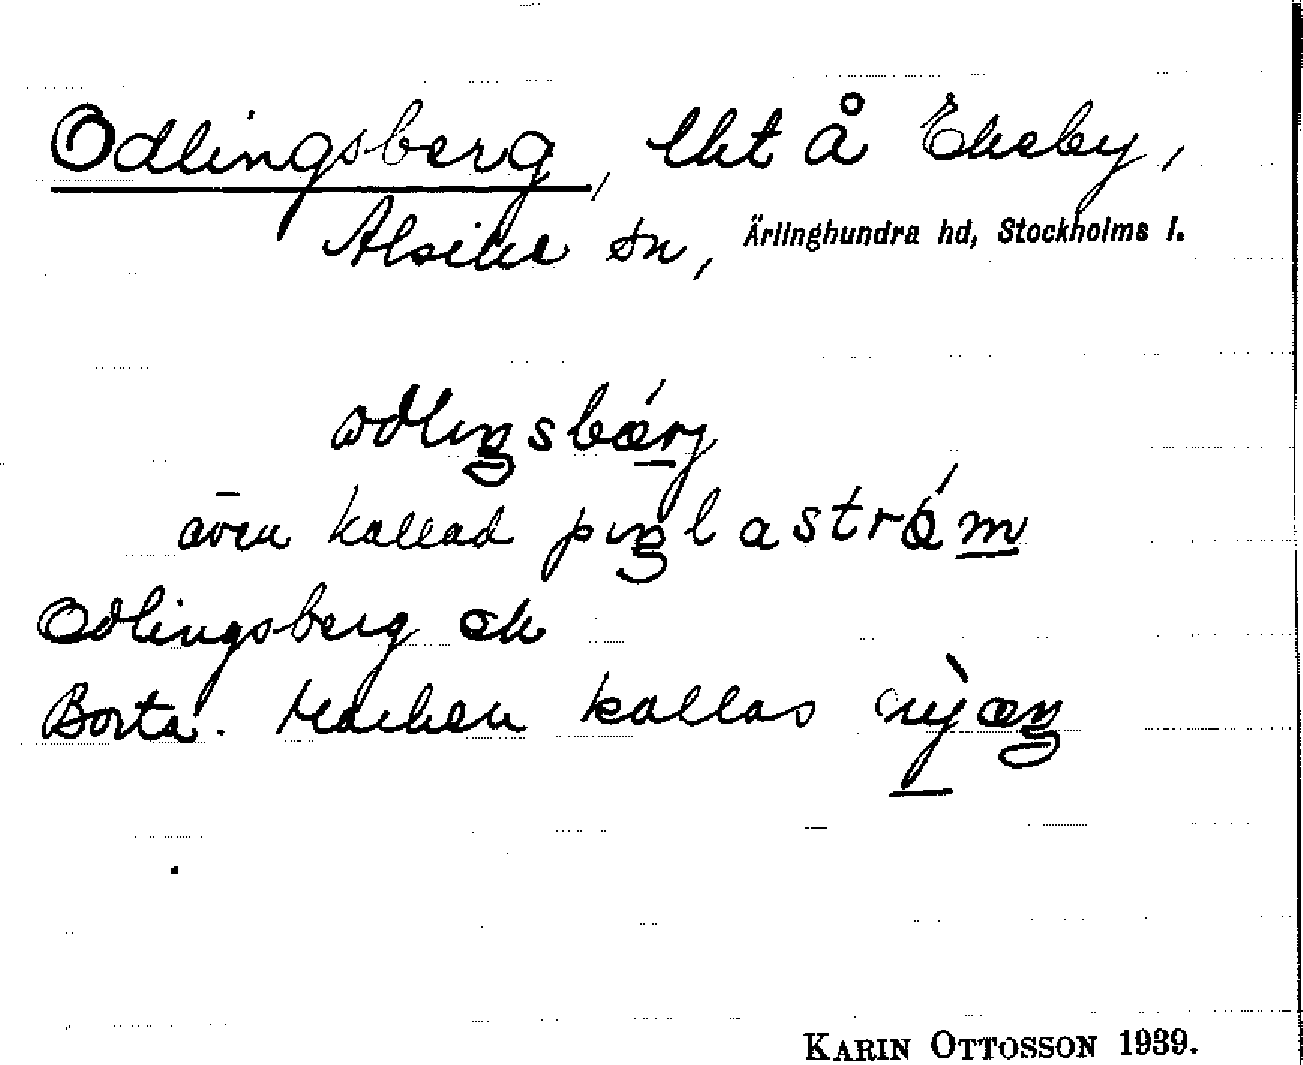 Odlingsberg, lht å Ekeby,
Alsike sn, Ärlinghundra hd, Stockholms l.
ɷdlıŋsbǽrj
även kallad pıŋlaström
Odlingsberg ek
Borta. Marken kallas nỳæŋ
KARIN OTTOSSON 1939.